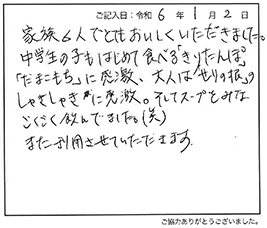 ご記入日：令和 6年 1月 2日
家族6人でとてもおいしくいただきました。
中学生の子もはじめて食べる「きりたんぽ」
「だまこもち」に感激、大人は「せりの根」の
しゃきしゃきに感激。そしてスープをみな
ごくごく飲んでました。(笑)
また利用させていただきます。
ご協力ありがとうございました。